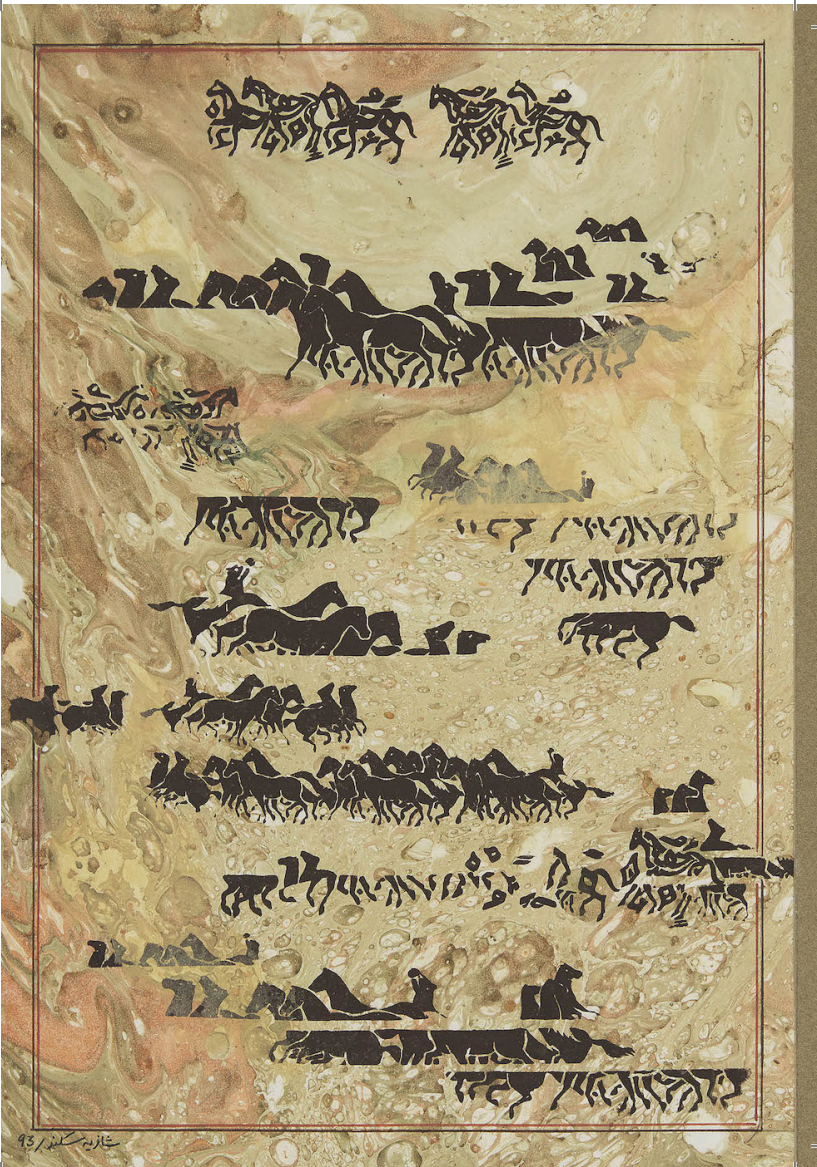 شازیہ سکندر / 93